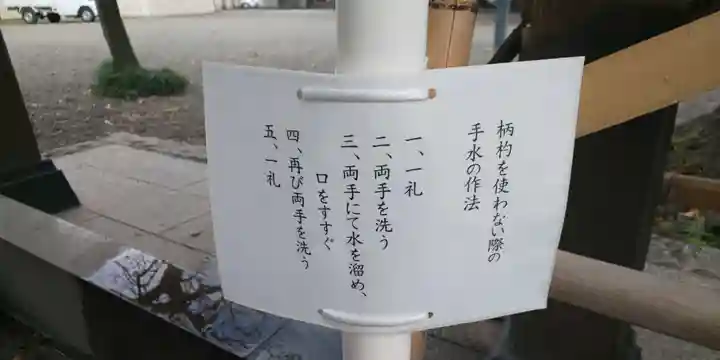 柄杓を使わない際の
手水の作法
一、一礼
二、両手を洗う
三、両手にて水を溜め、
口をすすぐ
四、再び両手を洗う
五、一礼